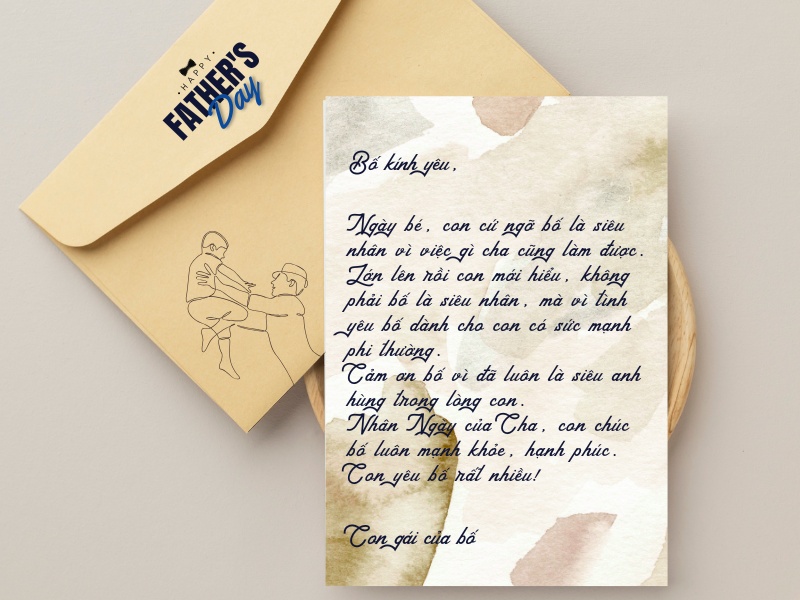 HAPPY
FATHER'S
Day
Bố kính yêu,
Ngày bé, con cứ ngỡ bố là siêu
nhân vì việc gì cha cũng làm được.
Lớn lên rồi con mới hiểu, không
phải bố là siêu nhân, mà vì tình
yêu bố dành cho con có sức mạnh
phi thường.
Cảm ơn bố vì đã luôn là siêu anh
hùng trong lòng con.
Nhân Ngày của Cha, con chúc
bố luôn mạnh khỏe, hạnh phúc.
Con yêu bố rất nhiều!
Con gái của bố